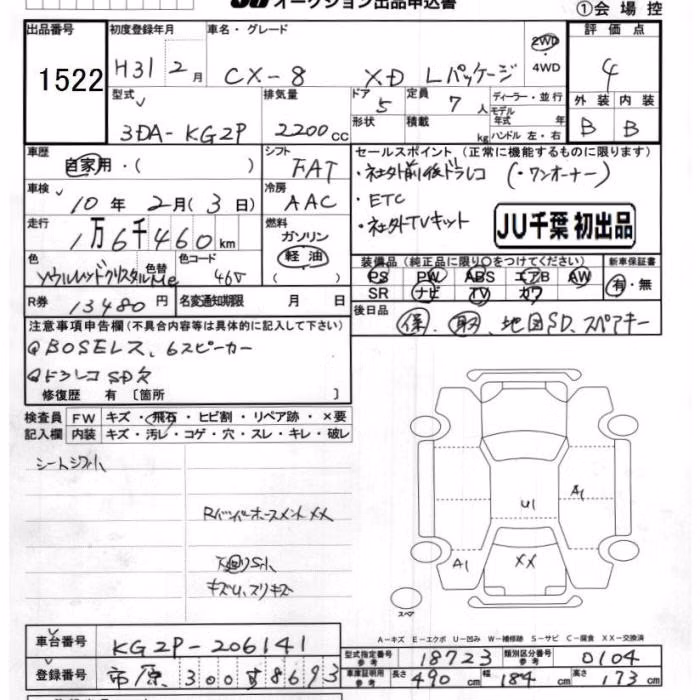 オークション出品申込書
①会場控
出品番号 1522
初度登録年月 H31 2月
車名・グレード CX-8 XD Lパッケージ
2WD
4WD
評価点 4
外装 B 内装 B
型式 3DA-KG2P
排気量 2200cc
ドア 5
形状
定員 7人
積載 kg
ディーラー・並行
モデル年式 年
ハンドル 左・右
車歴 自家用・( )
シフト FAT
車検 10年2月(3日)
冷房 AAC
走行 1万6千460km
燃料 ガソリン
軽油
( )
色 ソウルレッドクリスタルMe
色替
色コード 46V
R券 13480円
名変通知期限 月 日
セールスポイント(正常に機能するものに限ります)
・社外前後ドラレコ (・ワンオーナー)
・ETC
・社外TVキット
JU千葉 初出品
装備品(純正品に限り○をつけてください)
PS PW ABS エアB AW
SR ナビ TV カワ
新車保証書
有・無
後日品 保、取、地図SD、スペアキー
注意事項申告欄(不具合内容等は具体的に記入して下さい)
BOSEレス、6スピーカー
ドラレコSD欠
修復歴 有〔箇所 〕
検査員 FW キズ・飛石・ヒビ割・リペア跡・×要
記入欄 内装 キズ・汚レ・コゲ・穴・スレ・キレ・破レ
シートシワ小
XX
下廻りサ小
キズU、スリキズ
U1
A1
A1
XX
スペア
A-キズ E-エクボ U-凹み W-補修跡 S-サビ C-腐食 XX-交換済
車台番号 KG2P-206141
登録番号 市原300す8693
型式指定番号 参考 18723
類別区分番号 参考 0104
車庫証明用 参考 長さ 490cm 幅 184cm 高さ 173cm